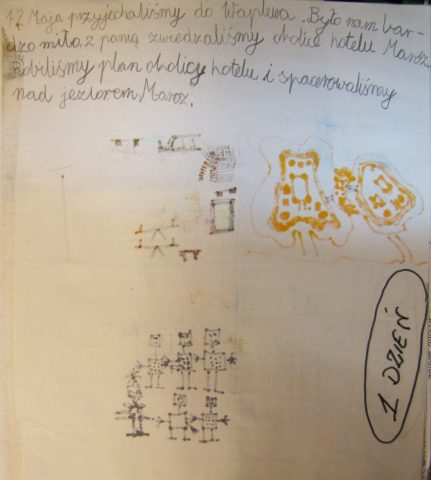 12 Maja przyjechaliśmy do Waplewa. Było nam bar-
dzo miło, z panią zwiedzaliśmy okolice hotelu Maróz.
Robiliśmy plan okolicy hotelu i spacerowaliśmy
nad jeziorem Maroz.
1 DZIEŃ